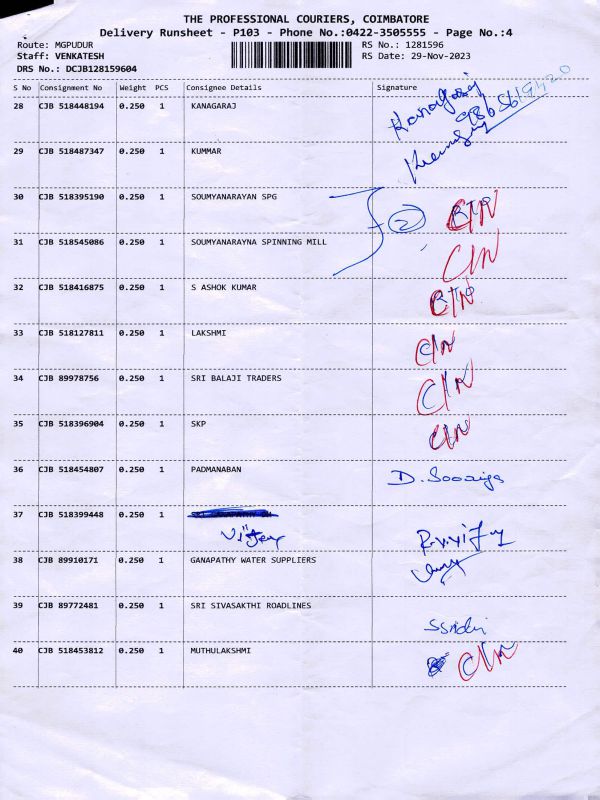 THE PROFESSIONAL COURIERS, COIMBATORE
Delivery Runsheet - P103 - Phone No.:0422-3505555 - Page No.:4
Route: MGPUDUR RS No.: 1281596
Staff: VENKATESH RS Date: 29-Nov-2023
DRS No.: DCJB128159604
S No Consignment No Weight PCS Consignee Details Signature
28 CJB 518448194 0.250 1 KANAGARAJ Kanagaraj
29 CJB 518487347 0.250 1 KUMMAR
30 CJB 518395190 0.250 1 SOUMYANARAYAN SPG 2 C/N
31 CJB 518545086 0.250 1 SOUMYANARAYNA SPINNING MILL C/N
32 CJB 518416875 0.250 1 S ASHOK KUMAR
33 CJB 518127811 0.250 1 LAKSHMI C/N
34 CJB 89978756 0.250 1 SRI BALAJI TRADERS C/N
35 CJB 518396904 0.250 1 SKP C/N
36 CJB 518454807 0.250 1 PADMANABAN D. Sooriya
37 CJB 518399448 0.250 1
38 CJB 89910171 0.250 1 GANAPATHY WATER SUPPLIERS
39 CJB 89772481 0.250 1 SRI SIVASAKTHI ROADLINES
40 CJB 518453812 0.250 1 MUTHULAKSHMI C/N